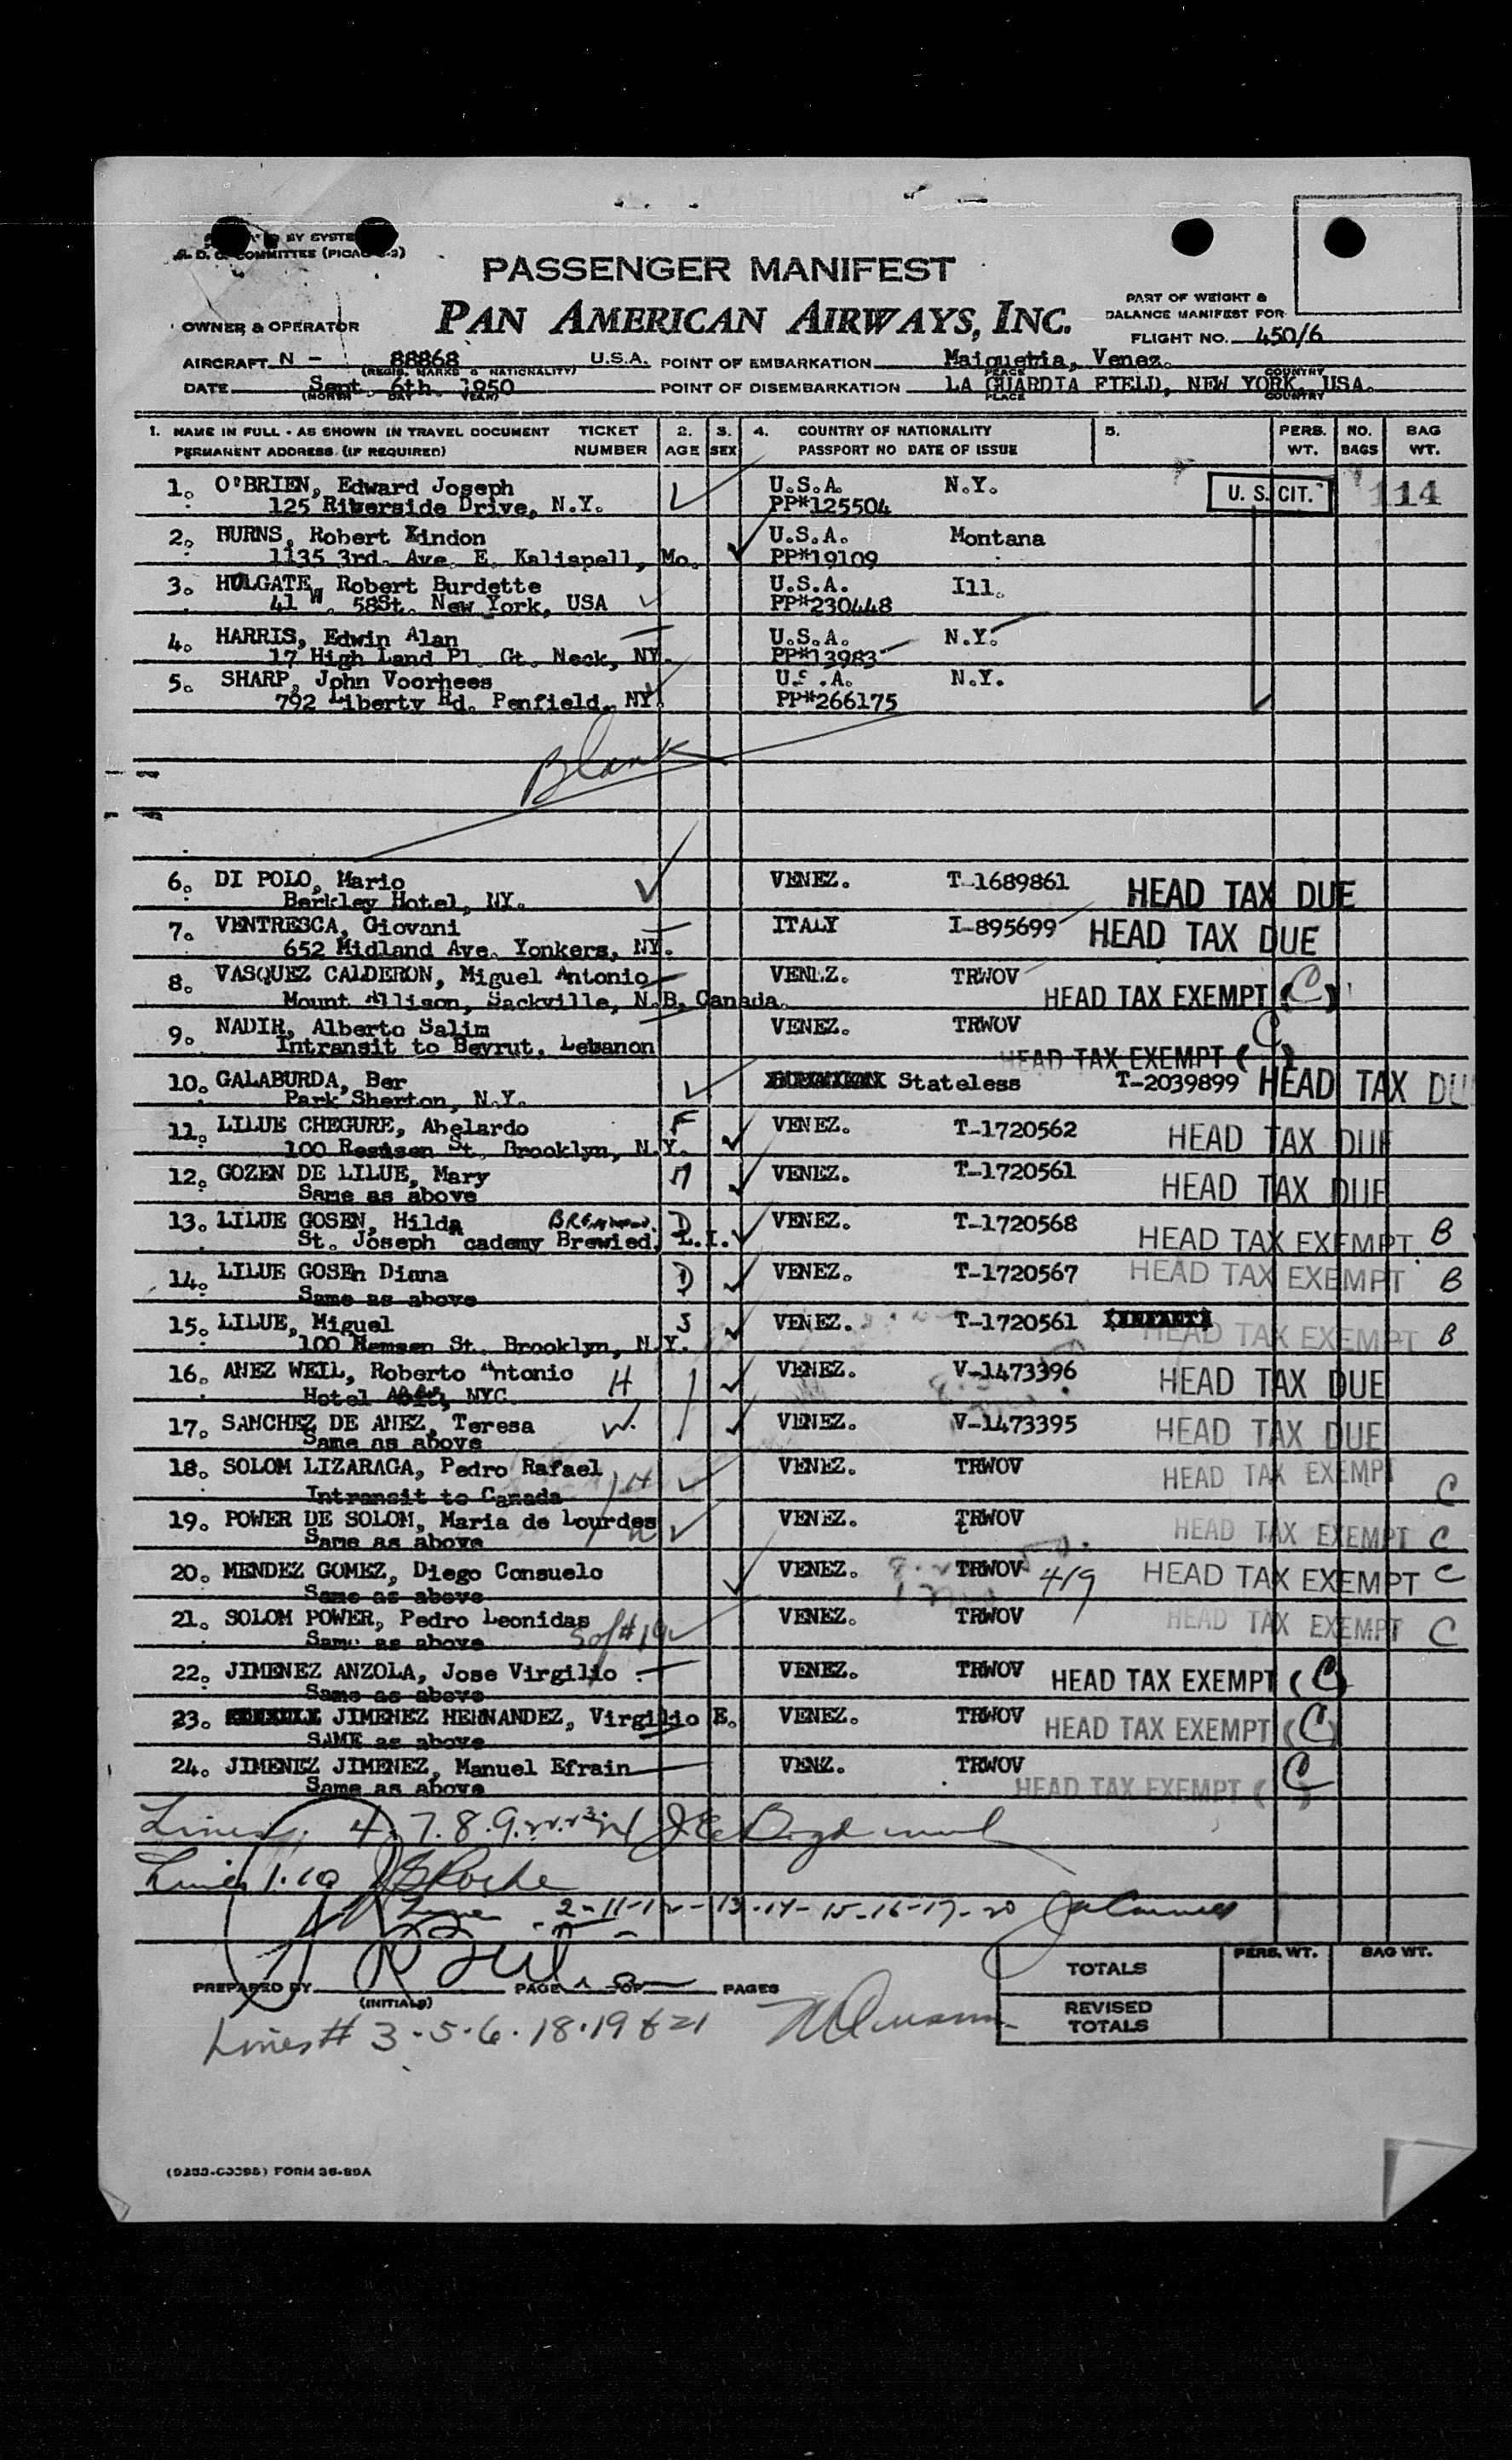 BY SYSTE
A. D. C. COMMITTEE (PICAO
PASSENGER MANIFEST
PAN AMERICAN AIRWAYS, INC.
OWNER & OPERATOR
PART OF WEIGHT &
BALANCE MANIFEST FOR
FLIGHT NO. 450/6
AIRCRAFT N - 88868 U.S.A. POINT OF EMBARKATION Maiquetia, Venez.
(REGIS. MARKS & NATIONALITY) PLACE COUNTRY
DATE Sept 6th 1950 POINT OF DISEMBARKATION LA GUARDIA FIELD, NEW YORK, USA.
(MONTH DAY YEAR) PLACE COUNTRY
1. NAME IN FULL - AS SHOWN IN TRAVEL DOCUMENT TICKET 2. 3. 4. COUNTRY OF NATIONALITY 5. PERS. NO. BAG
PERMANENT ADDRESS (IF REQUIRED) NUMBER AGE SEX PASSPORT NO DATE OF ISSUE WT. BAGS WT.
1. O'BRIEN, Edward Joseph U.S.A. N.Y. U. S. CIT. 114
125 Riverside Drive, N.Y. PP#125504
2. BURNS, Robert Kindon U.S.A. Montana
1135 3rd. Ave. E. Kalispell, Mo. PP#19109
3. HULGATE, Robert Burdette U.S.A. Ill.
41 W. 58St. New York, USA PP#230448
4. HARRIS, Edwin Alan U.S.A. N.Y.
17 High Land Pl. Gt. Neck, NY. PP#13983
5. SHARP, John Voorhees U.S.A. N.Y.
792 Liberty Rd. Penfield, NY. PP#266175
Blank
6. DI POLO, Mario VENEZ. T-1689861 HEAD TAX DUE
Berkley Hotel, NY.
7. VENTRESCA, Giovani ITALY I-895699 HEAD TAX DUE
652 Midland Ave. Yonkers, NY.
8. VASQUEZ CALDERON, Miguel Antonio VENEZ. TRWOV
Mount Allison, Sackville, N.B. Canada. HEAD TAX EXEMPT (C)
9. NADIR, Alberto Salim VENEZ. TRWOV C
Intransit to Beyrut, Lebanon HEAD TAX EXEMPT ( )
10. GALABURDA, Ber Stateless T-2039899 HEAD TAX DU
Park Sherton, N.Y.
11. LILUE CHEGURE, Abelardo F VENEZ. T-1720562 HEAD TAX DUE
100 Remsen St. Brooklyn, N.Y.
12. GOZEN DE LILUE, Mary M VENEZ. T-1720561 HEAD TAX DUE
Same as above
13. LILUE GOSEN, Hilda D VENEZ. T-1720568 HEAD TAX EXEMPT B
St. Joseph cademy Brewied, L.I.
14. LILUE GOSEn Diana D VENEZ. T-1720567 HEAD TAX EXEMPT B
Same as above
15. LILUE, Miguel S VENEZ. T-1720561 (INFANT) HEAD TAX EXEMPT B
100 Remsen St. Brooklyn, N.Y.
16. ANEZ WEIL, Roberto Antonio H VENEZ. V-1473396 HEAD TAX DUE
Hotel NYC.
17. SANCHEZ DE ANEZ, Teresa W. VENEZ. V-1473395 HEAD TAX DUE
Same as above
18. SOLOM LIZARAGA, Pedro Rafael H VENEZ. TRWOV HEAD TAX EXEMPT C
Intransit to Canada
19. POWER DE SOLOM, Maria de Lourdes W VENEZ. TRWOV HEAD TAX EXEMPT C
Same as above
20. MENDEZ GOMEZ, Diego Consuelo VENEZ. TRWOV 419 HEAD TAX EXEMPT C
Same as above
21. SOLOM POWER, Pedro Leonidas VENEZ. TRWOV HEAD TAX EXEMPT C
Same as above S of #19
22. JIMENEZ ANZOLA, Jose Virgilio VENEZ. TRWOV HEAD TAX EXEMPT (C)
Same as above
23. JIMENEZ HERNANDEZ, Virgilio E. VENEZ. TRWOV HEAD TAX EXEMPT (C)
SAME as above
24. JIMENEZ JIMENEZ, Manuel Efrain VENZ. TRWOV C
Same as above HEAD TAX EXEMPT ( )
Lines 4. 7. 8. 9. 22. 23. 24
Lines 1. 10 Roche
Line 2-11-12-13-14-15-16-17-20
PREPARED BY PAGE OF PAGES
(INITIALS)
TOTALS PERS. WT. BAG WT.
REVISED
TOTALS
Lines # 3. 5. 6. 18. 19 & 21
FORM 36-89A